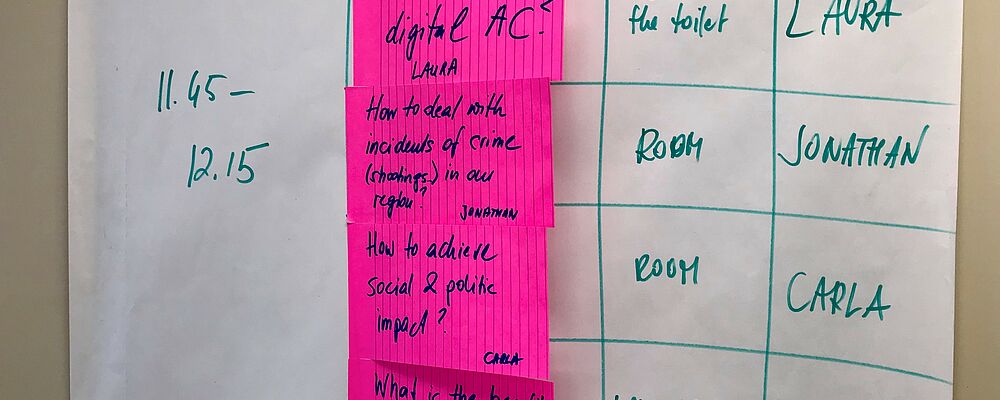 digital AC?
LAURA
the toilet
LAURA
11.45 –
12.15
How to deal with
incidents of crime
(shootings) in our
region?
JONATHAN
ROOM
JONATHAN
How to achieve
social & politic
impact?
CARLA
ROOM
CARLA
What is the